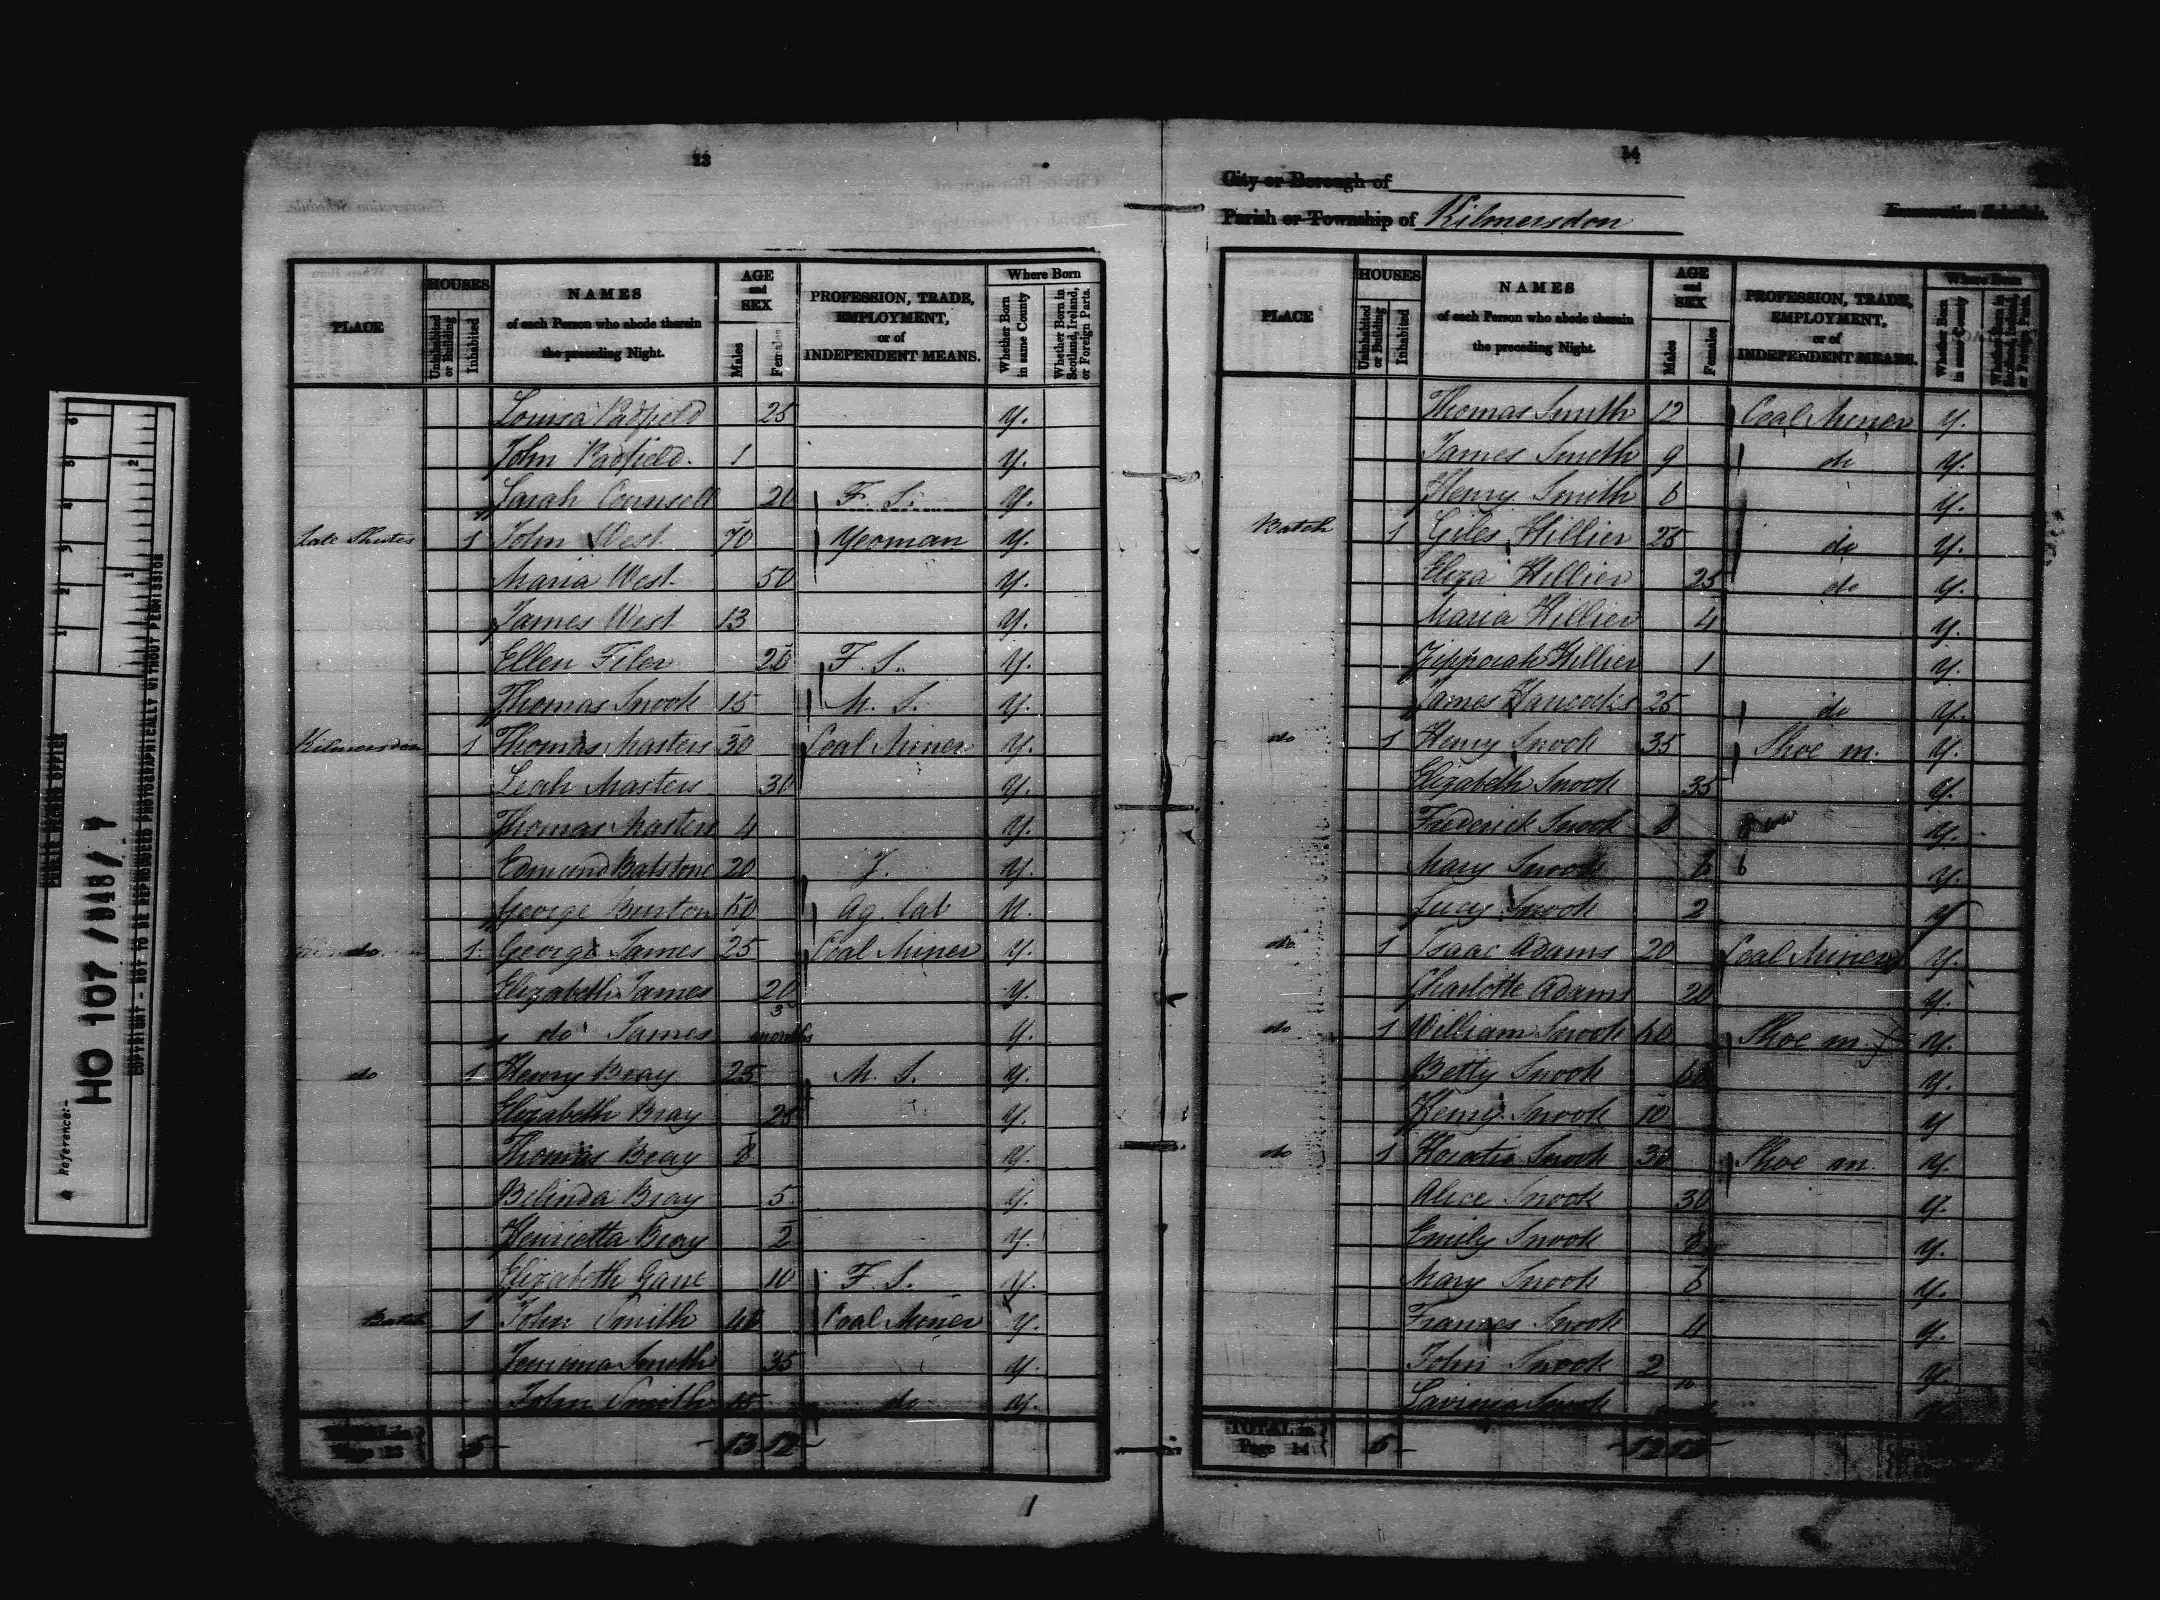 23
PLACE
HOUSES
Uninhabited or Building
Inhabited
NAMES
of each Person who abode therein
the preceding Night.
AGE
and
SEX
Males
Females
PROFESSION, TRADE,
EMPLOYMENT,
or of
INDEPENDENT MEANS.
Where Born
Whether Born in same County
Whether Born in Scotland, Ireland, or Foreign Parts.
Louisa Padfield 25 Y.
John Padfield. 1 Y.
Sarah Counsell 20 F. S. Y.
1 John West 70 Yeoman Y.
Maria West. 50 Y.
James West 13 Y.
Ellen Filer 20 F. S. Y.
Thomas Snook 15 M. S. Y.
Kilmersdon 1 Thomas Masters 30 Coal Miner Y.
Leah Masters 30 Y.
Thomas Masters 4 Y.
Edmund Batstone 20 J. Y.
George Burton 60 Ag. lab N.
do 1 George James 25 Coal Miner Y.
Elizabeth James 20 Y.
do James 3 months Y.
do 1 Henry Bray 25 M. S. Y.
Elizabeth Bray 25 Y.
Thomas Bray 8 Y.
Belinda Bray 5 Y.
Henrietta Bray 2 Y.
Elizabeth Gane 10 F. S. Y.
Batch 1 John Smith 40 Coal Miner Y.
Jemima Smith 35 Y.
John Smith 15 do Y.
TOTAL in
Page 23 5 13 12
14
City or Borough of
Parish or Township of Kilmersdon
Enumeration Schedule.
PLACE
HOUSES
Uninhabited or Building
Inhabited
NAMES
of each Person who abode therein
the preceding Night.
AGE
and
SEX
Males
Females
PROFESSION, TRADE,
EMPLOYMENT,
or of
INDEPENDENT MEANS.
Where Born
Whether Born in same County
Whether Born in Scotland, Ireland, or Foreign Parts.
Thomas Smith 12 Coal Miner Y.
James Smith 9 do Y.
Henry Smith 6 Y.
Batch 1 Giles Hillier 25 do Y.
Eliza Hillier 25 do Y.
Maria Hillier 4 Y.
Zipporah Hillier 1 Y.
James Hancocks 25 do Y.
do 1 Henry Snook 35 Shoe m. Y.
Elizabeth Snook 35 Y.
Frederick Snook 8 Y.
Mary Snook 6 6 Y.
Lucy Snook 2 Y
do 1 Isaac Adams 20 Coal Miner Y.
Charlotte Adams 20 Y.
do 1 William Snook 60 Shoe m. Y.
Betty Snook 60 Y.
Henry Snook 10 Y
do 1 Horatio Snook 30 Shoe m. Y.
Alice Snook 30 Y.
Emily Snook 8 Y.
Mary Snook 6 Y.
Frances Snook 4 Y.
John Snook 2 Y.
Lavinia Snook 10
TOTAL in
Page 14 5
PUBLIC RECORD OFFICE
Reference:-
HO 107/948/7
COPYRIGHT - NOT TO BE REPRODUCED PHOTOGRAPHICALLY WITHOUT PERMISSION
1 2 3 4 5 6
1 2